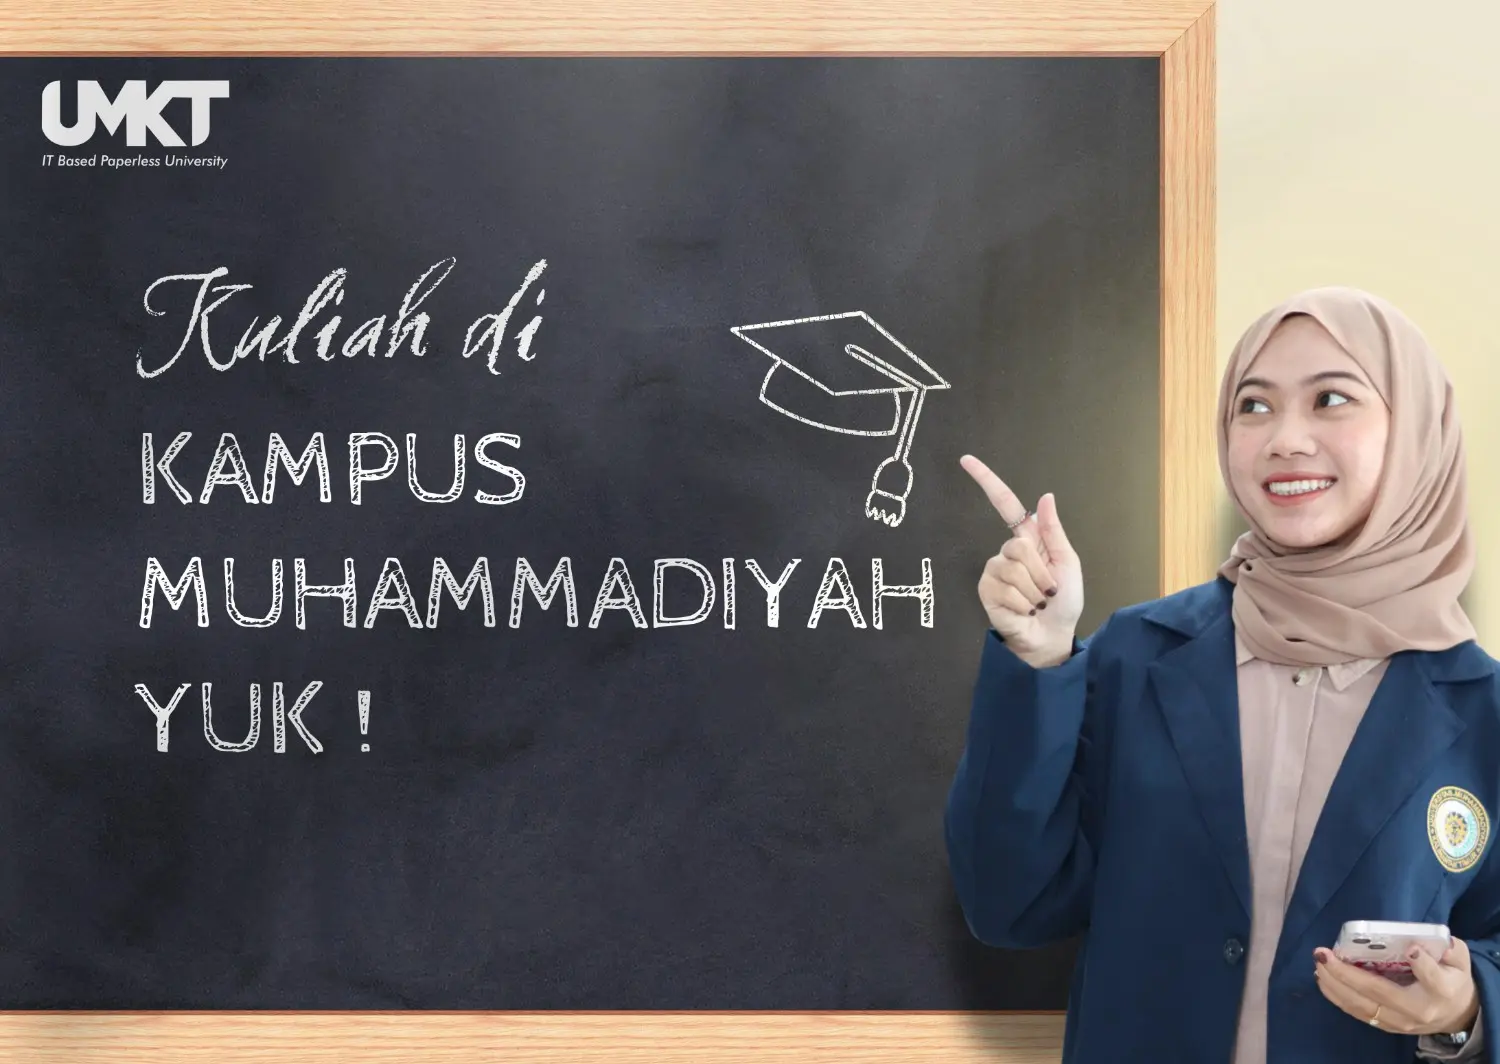 UMKT
IT Based Paperless University
Kuliah di
KAMPUS
MUHAMMADIYAH
YUK !